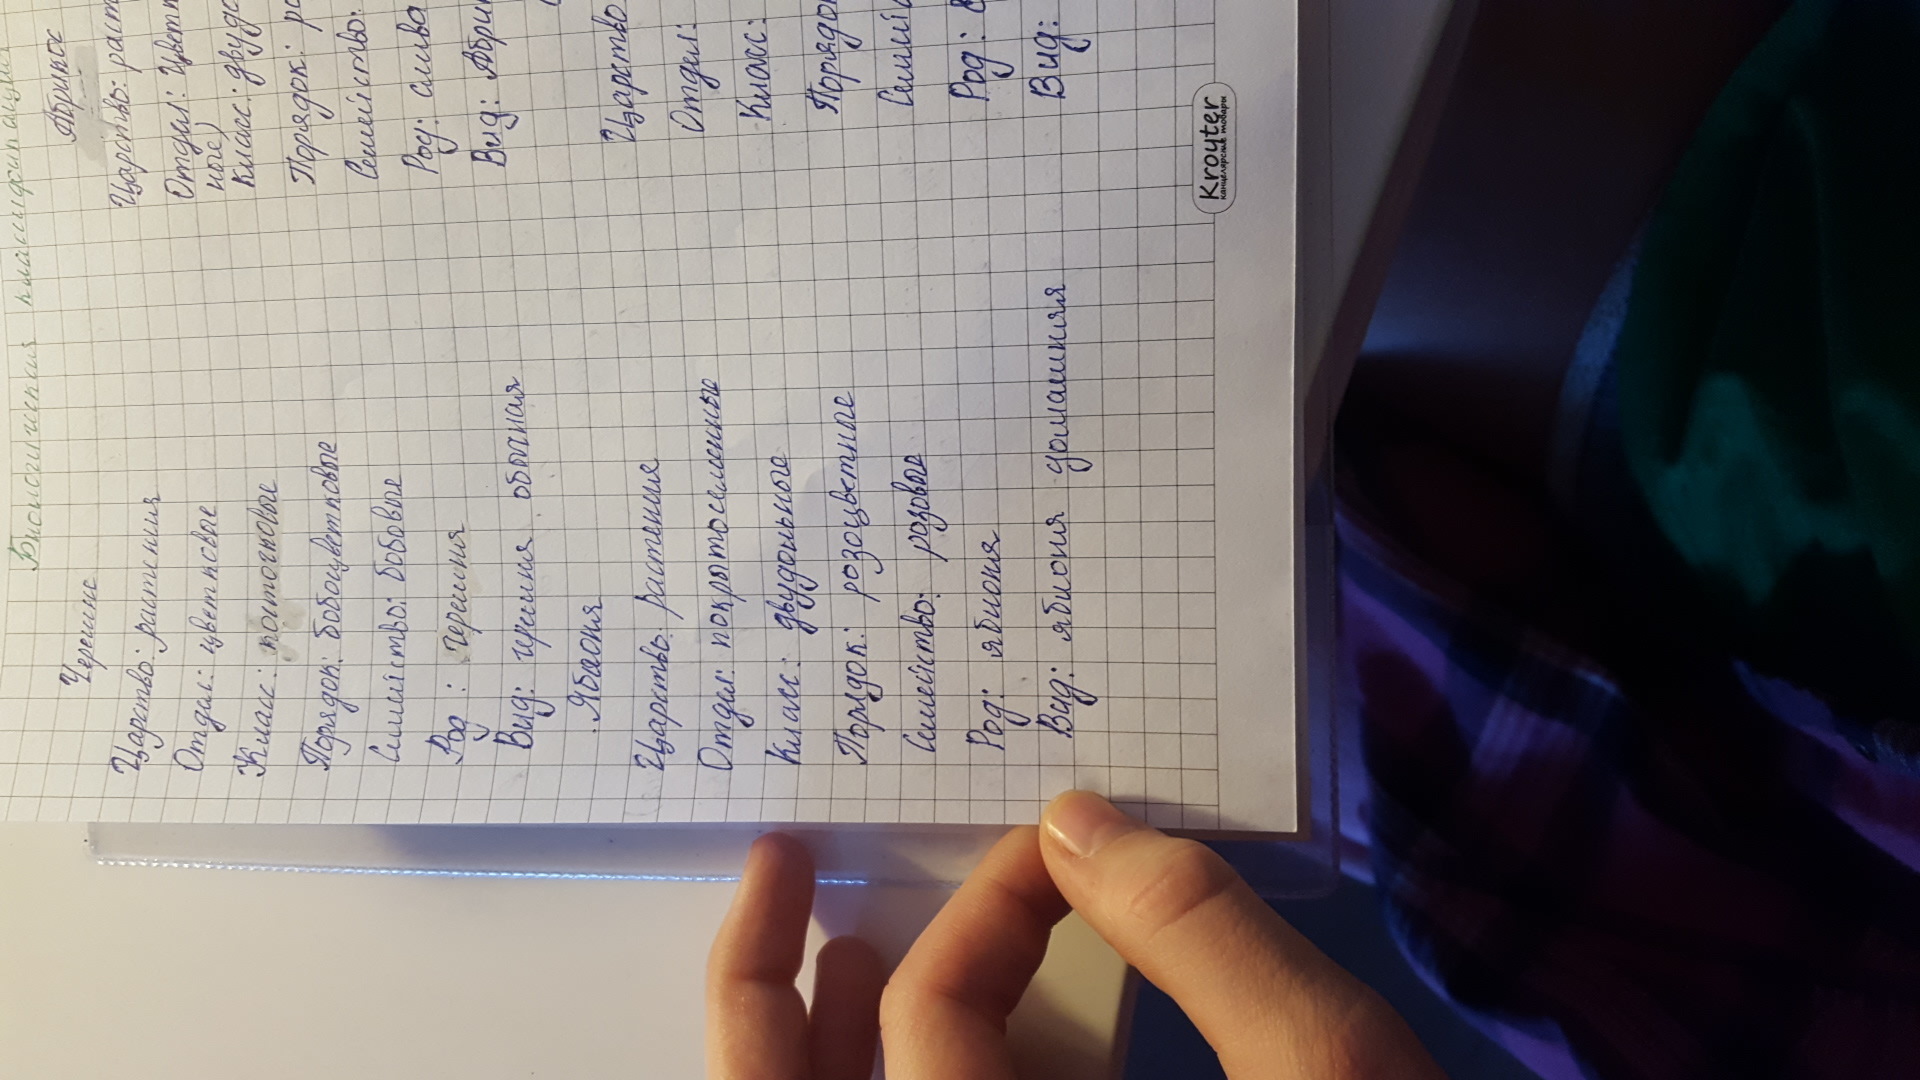 Биологическая классификация
Черешня
Царство: растения
Отдел: цветковые
Класс:
Порядок: бобоцветковые
Семейство: бобовые
Род: черешня
Вид: черешня обычная
Яблоня
Царство: растение
Отдел: покрытосеменные
Класс: двудольные
Порядок: розоцветные
Семейство: розовые
Род: яблоня
Вид: яблоня домашняя
Абрикос
Царство: раст
Отдел: Цветк
ные)
Класс: двудо
Порядок: ро
Семейство:
Род: слива
Вид: Абри
Царство
Отдел:
Класс:
Порядо
Семей
Род:
Вид:
Kroyter
канцелярские товары